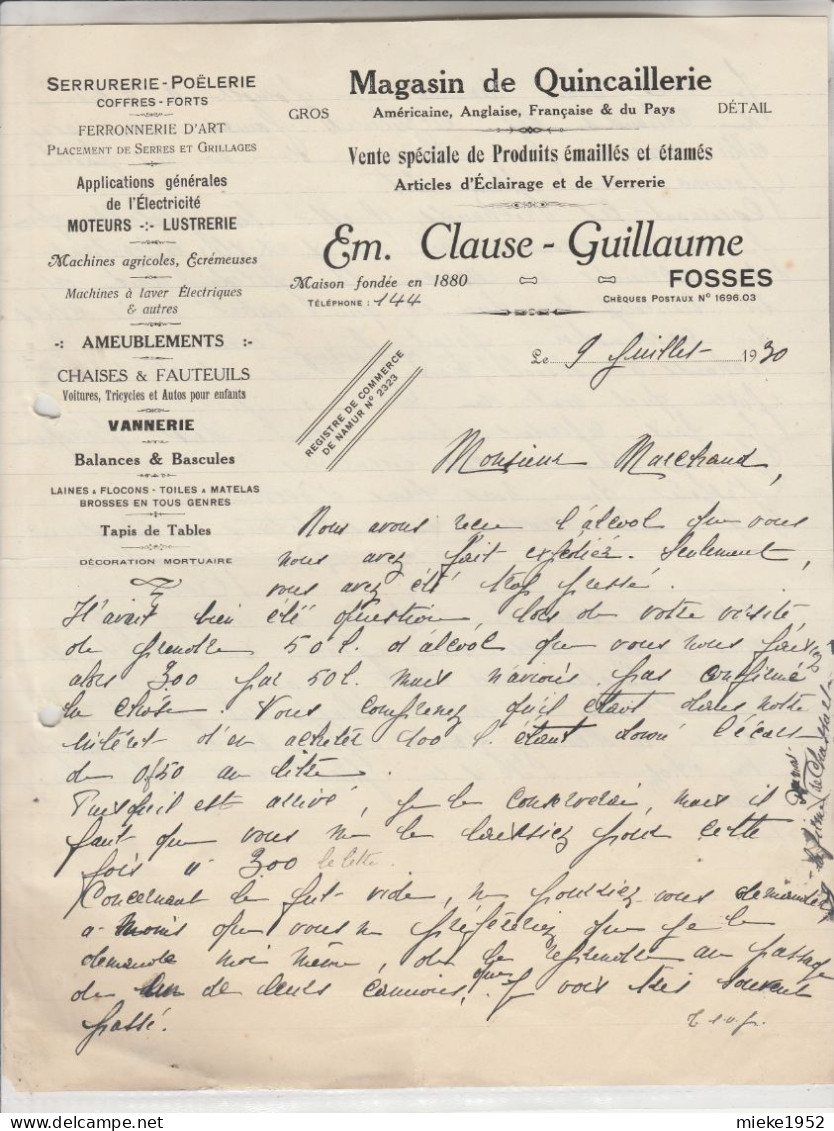 SERRURERIE - POËLERIE
COFFRES - FORTS
FERRONNERIE D'ART
PLACEMENT DE SERRES ET GRILLAGES
Applications générales
de l'Électricité
MOTEURS -:- LUSTRERIE
Machines agricoles, Ecrémeuses
Machines à laver Électriques
& autres
-: AMEUBLEMENTS :-
CHAISES & FAUTEUILS
Voitures, Tricycles et Autos pour enfants
VANNERIE
Balances & Bascules
LAINES & FLOCONS - TOILES A MATELAS
BROSSES EN TOUS GENRES
Tapis de Tables
DÉCORATION MORTUAIRE
Magasin de Quincaillerie
GROS Américaine, Anglaise, Française & du Pays DÉTAIL
Vente spéciale de Produits émaillés et étamés
Articles d'Éclairage et de Verrerie
Em. Clause - Guillaume
Maison fondée en 1880 FOSSES
TÉLÉPHONE : 144 CHÈQUES POSTAUX N° 1696.03
Le 9 Juillet 1930
REGISTRE DE COMMERCE
DE NAMUR N° 2323
Monsieur Marchand,
Nous avons reçu l'alcool que vous
nous avez fait expédier. Seulement,
vous avez été trop pressé.
Il avait bien été question, lors de votre visite
de prendre 50 l. d'alcool que vous nous faisiez
alors 3.00 par 50 l. mais n'avions pas confirmé
la chose. Vous comprenez qu'il était dans notre
intérêt d'en acheter 100 l. étant donné l'écart
de 0f50 au litre.
Puisqu'il est arrivé, je le conserverai, mais il
faut que vous me le laissiez pour cette
fois à 3.00 le litre.
Concernant le fut vide, ne pourriez vous demander
à moins que vous ne préfériez que je le
demande moi même, de le reprendre au passage
de un de leurs camions, que je vois très souvent
passé.
T.S.V.P.
mieke1952